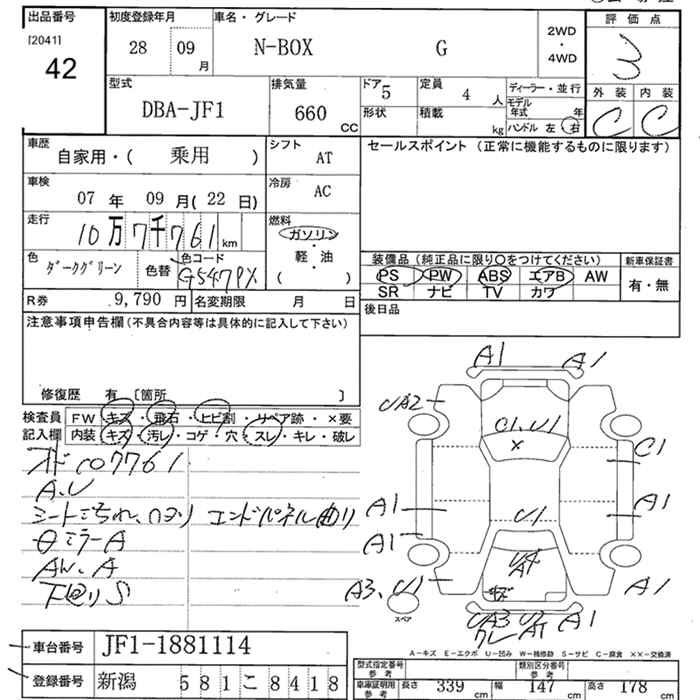 出品番号 初度登録年月 車名・グレード 評価点
[2041] 42 28 09月 N-BOX G 2WD・4WD 3
型式 排気量 ドア 定員 ディーラー・並行 外装 内装
DBA-JF1 660cc 5 4人 モデル年式 年 C C
形状 積載 kg ハンドル 左 右
車歴 自家用・(乗用) シフト AT セールスポイント(正常に機能するものに限ります)
車検 07年 09月(22日) 冷房 AC
走行 10万7千761km 燃料 ガソリン・軽・油( )
色 ダークグリーン 色替 色コード G547PX
装備品(純正品に限り○をつけてください) 新車保証書
PS PW ABS エアB AW 有・無
SR ナビ TV カワ
R券 9,790円 名変期限 月 日 後日品
注意事項申告欄(不具合内容等は具体的に記入して下さい)
修復歴 有 [箇所 ]
検査員記入欄 FW キズ・飛石・ヒビ割・リペア跡・×要
内装 キズ・汚レ・コゲ・穴・スレ・キレ・破レ
A.U
エンドパネル曲り
ミラーA
AW.A
下回りS
A1 A1
UA2
C1.U1
×
C1
A1 U1 A1
A1
A3、U1 A1
スペア
A1
A-キズ E-エクボ U-凹み W-補修跡 S-サビ C-腐食 ××-交換済
車台番号 JF1-1881114
登録番号 新潟 581こ8418
型式指定番号 参考 類別区分番号 参考
車庫証明用 参考 長さ 339cm 幅 147cm 高さ 178cm